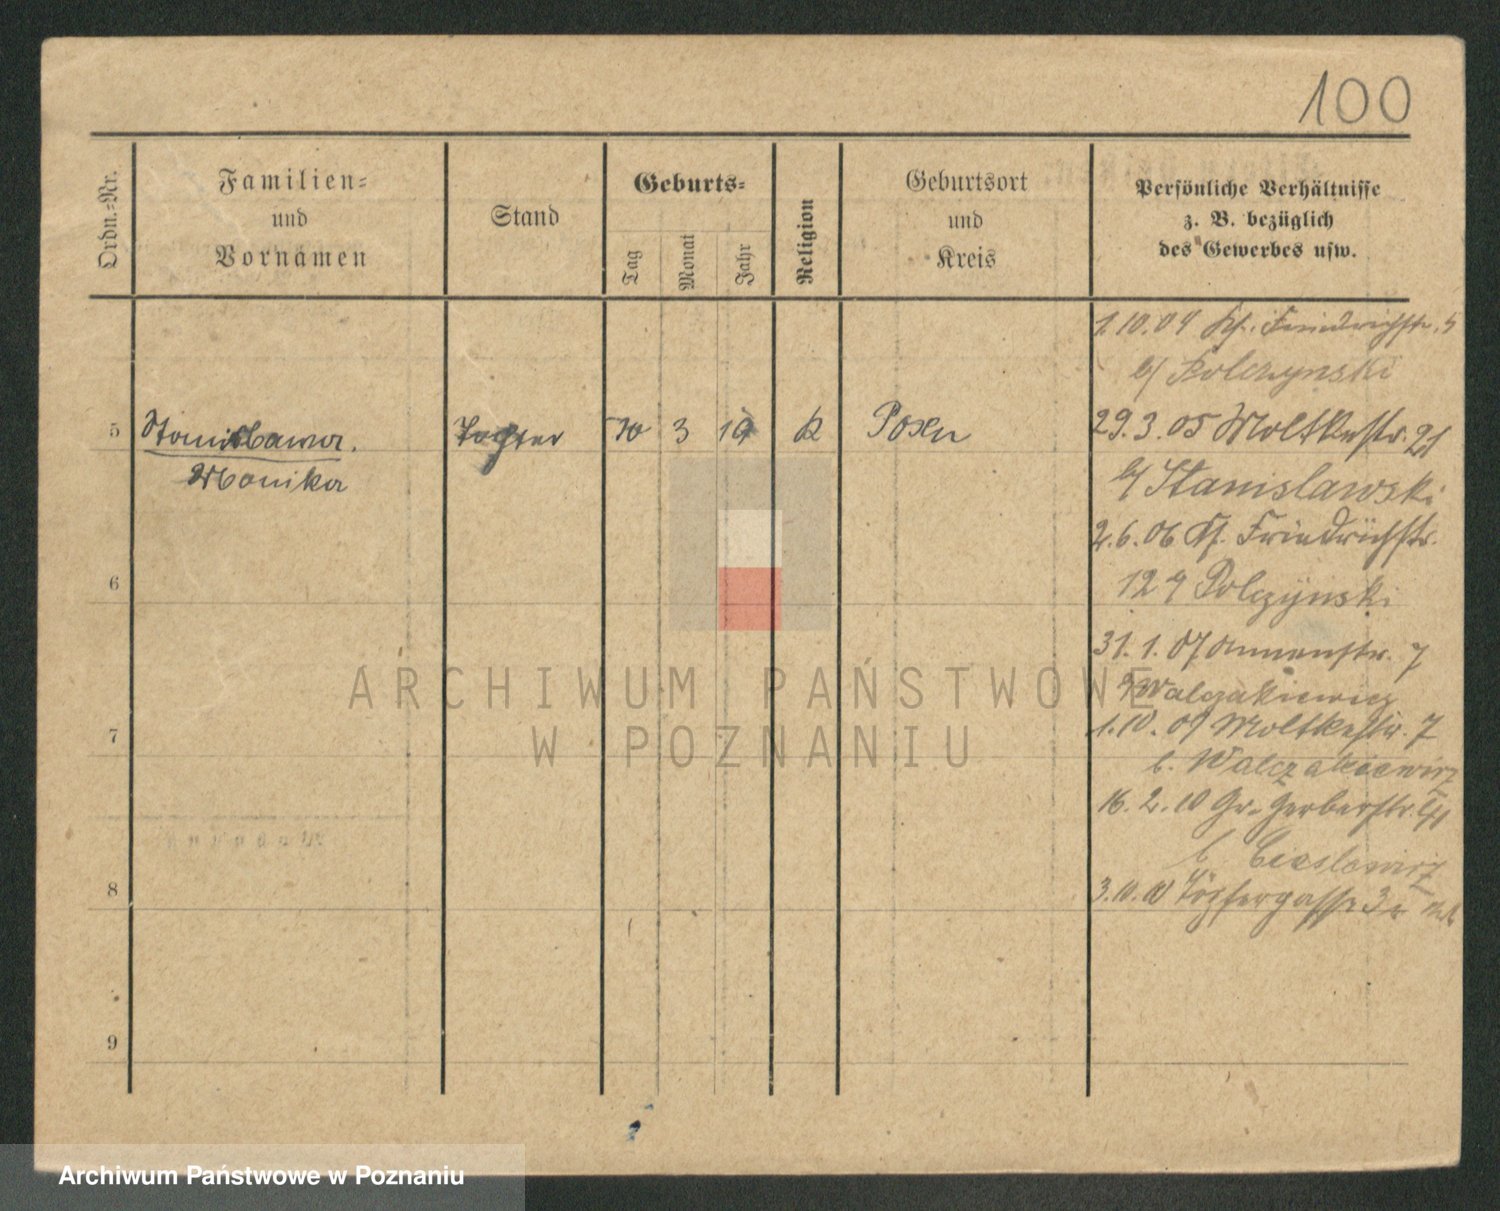 100
Ordn.-Nr.
Familien-
und
Vornamen
Stand
Geburts-
Tag
Monat
Jahr
Religion
Geburtsort
und
Kreis
Persönliche Verhältnisse
z. B. bezüglich
des Gewerbes usw.
1.10.04 Kl. Friedrichstr. 5
b/ Polczynski
5 Stanislawa. Tochter 30 3 10 k Posen
29.3.05 Moltkestr. 21
Monika
b/ Stanislawski
2.6.06 Kl. Friedrichstr.
6
12 Polczÿnski
31.1.07 Annenstr. 7
Walczakiewicz
1.10.09 Moltkestr. 7
7
b. Walczakiewicz
16.2.10 Gr. Gerberstr.
b
8
3.10.10 Töpfergasse 3
9
ARCHIWUM PAŃSTWOWE
W POZNANIU
Archiwum Państwowe w Poznaniu